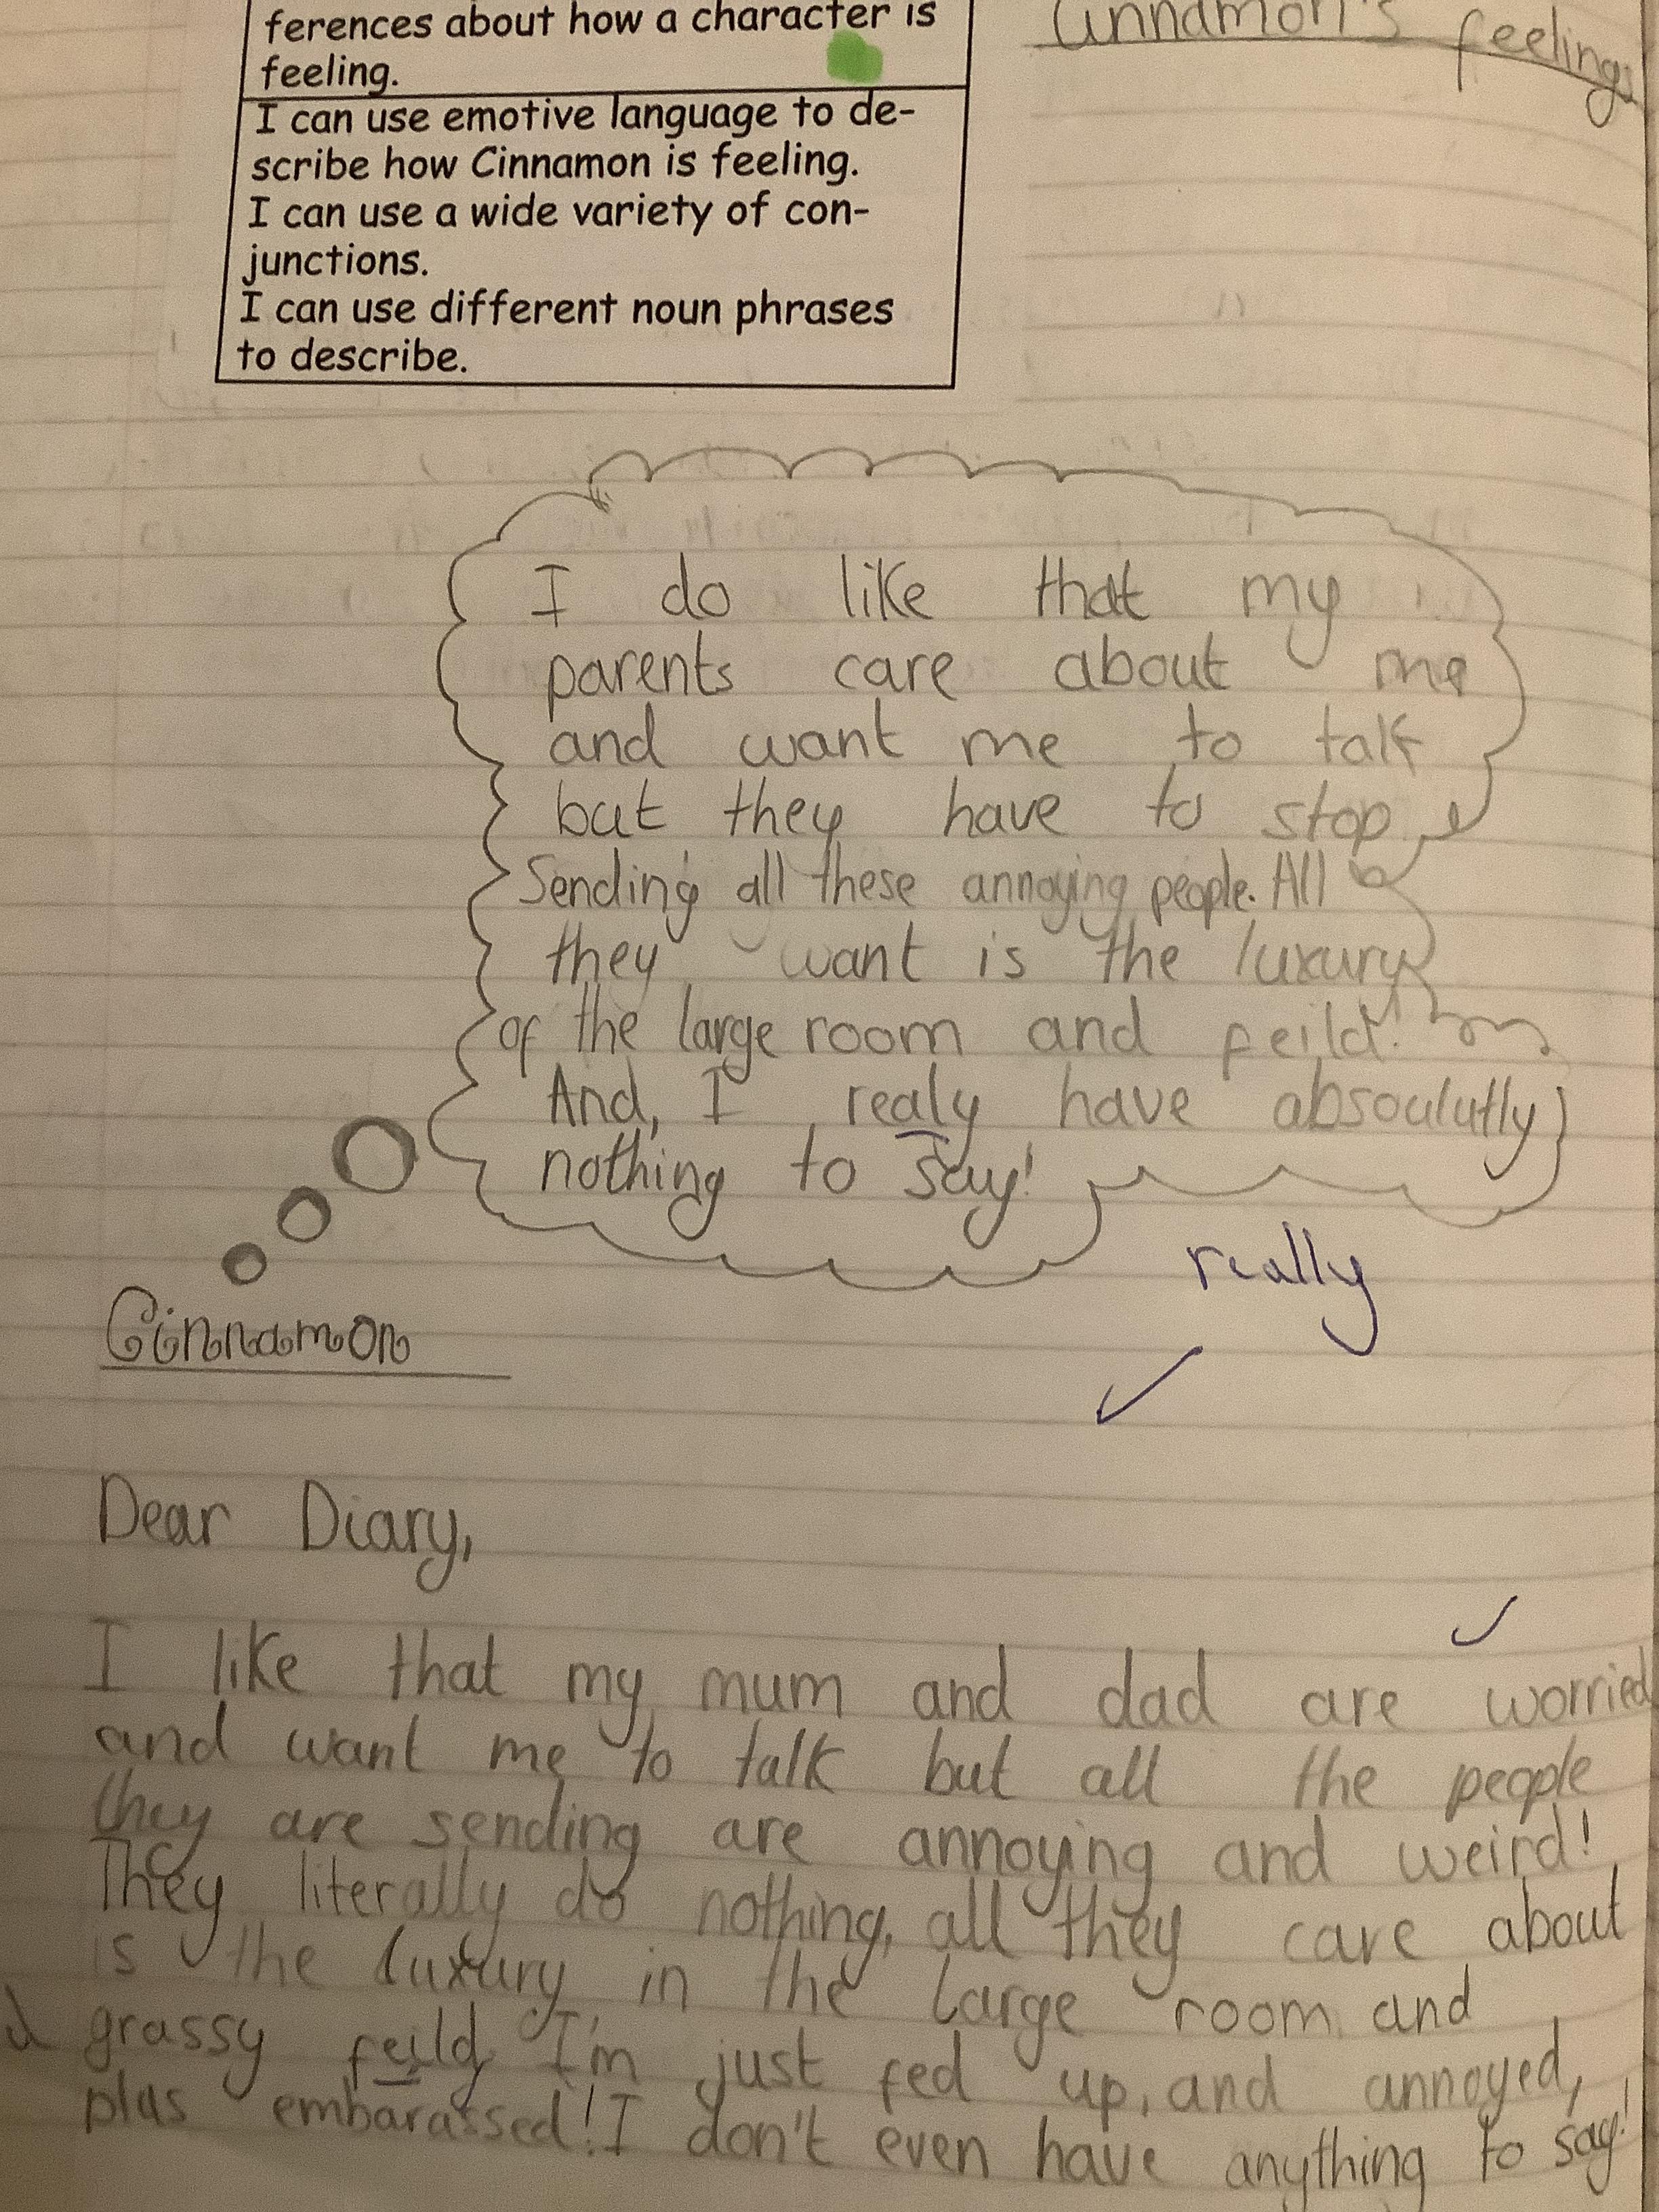 ferences about how a character is
feeling.
I can use emotive language to de-
scribe how Cinnamon is feeling.
I can use a wide variety of con-
junctions.
I can use different noun phrases
to describe.
Cinnamon's feelings
I do like that my
parents care about me
and want me to talk
but they have to stop
Sending all these annoying people. All
they want is the luxury
of the large room and feild!
And, I realy have absoulutly
nothing to say!
really
Cinnamon
Dear Diary,
I like that my mum and dad are worried
and want me to talk but all the people
they are sending are annoying and weird!
They literally do nothing, all they care about
is the luxury in the large room and
grassy feild. I'm just fed up, and annoyed,
plus embarassed! I don't even have anything to say!